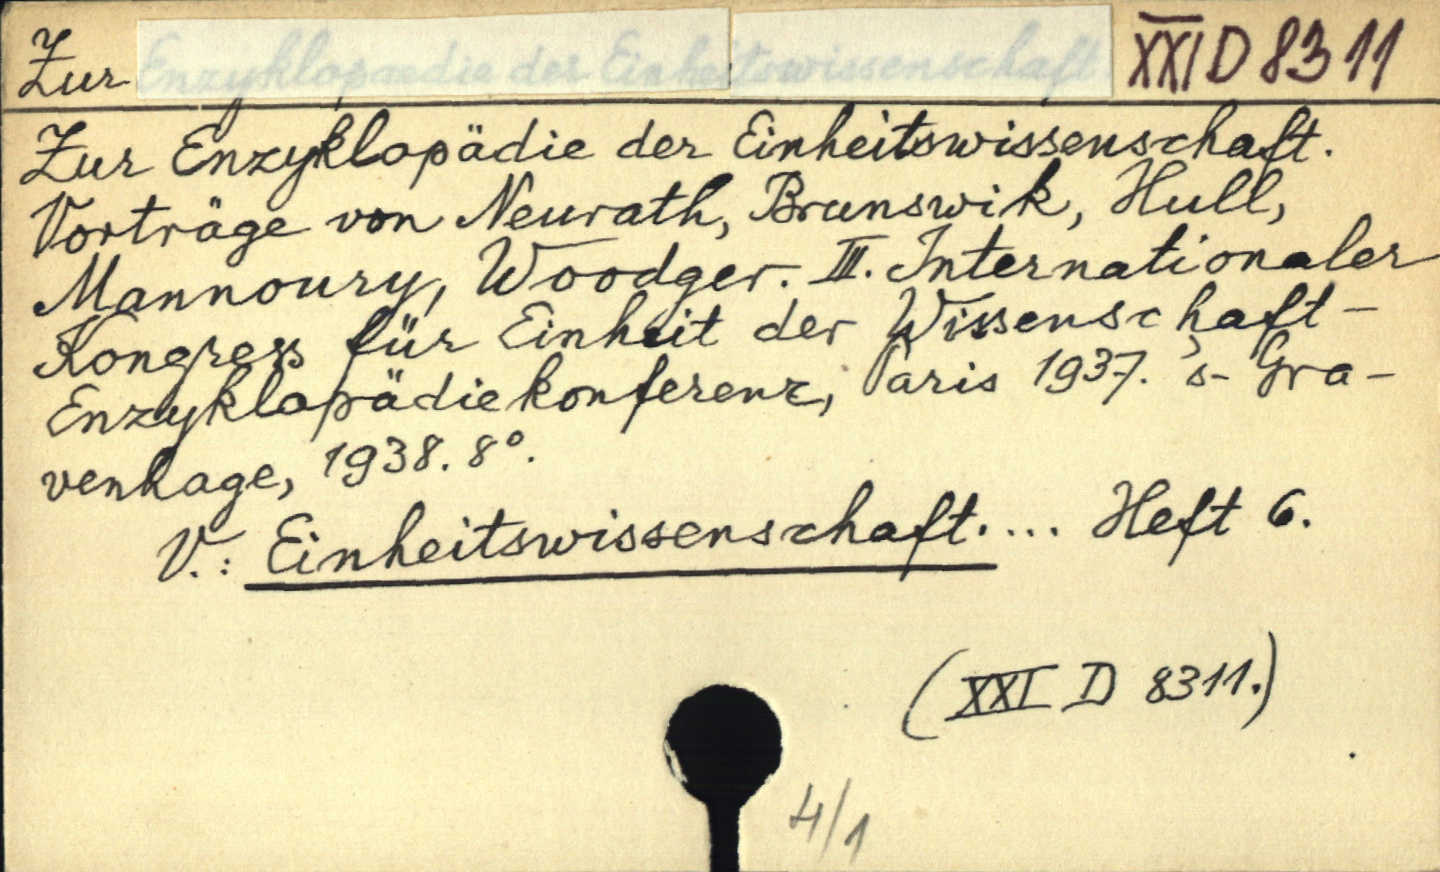 Zur Enzyklopaedie der Einheitswissenschaft. XXI D 8311
Zur Enzyklopädie der Einheitswissenschaft.
Vorträge von Neurath, Brunswik, Hull,
Mannoury, Woodger. III. Internationaler
Kongress für Einheit der Wissenschaft-
Enzyklopädiekonferenz, Paris 1937. 's-Gra-
venhage, 1938. 8°.
V.: Einheitswissenschaft.... Heft 6.
(XXI D 8311.)
4/1